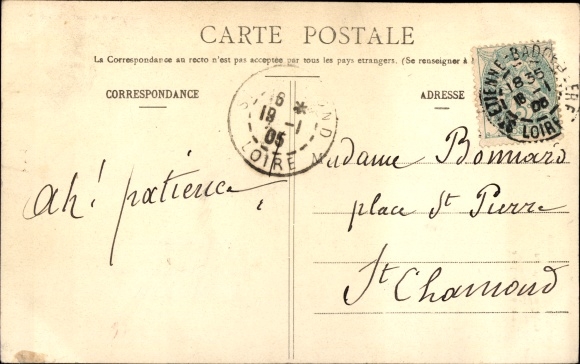 CARTE POSTALE
La Correspondance au recto n'est pas acceptée par tous les pays etrangers. (Se renseigner à
CORRESPONDANCE
ADRESSE
ST ETIENNE-BADOUILLERE
18 35
18 -1
06
LOIRE
16
19 -1
05
LOIRE
Ah! patience
Madame Bonnard
place St Pierre
St Chamond